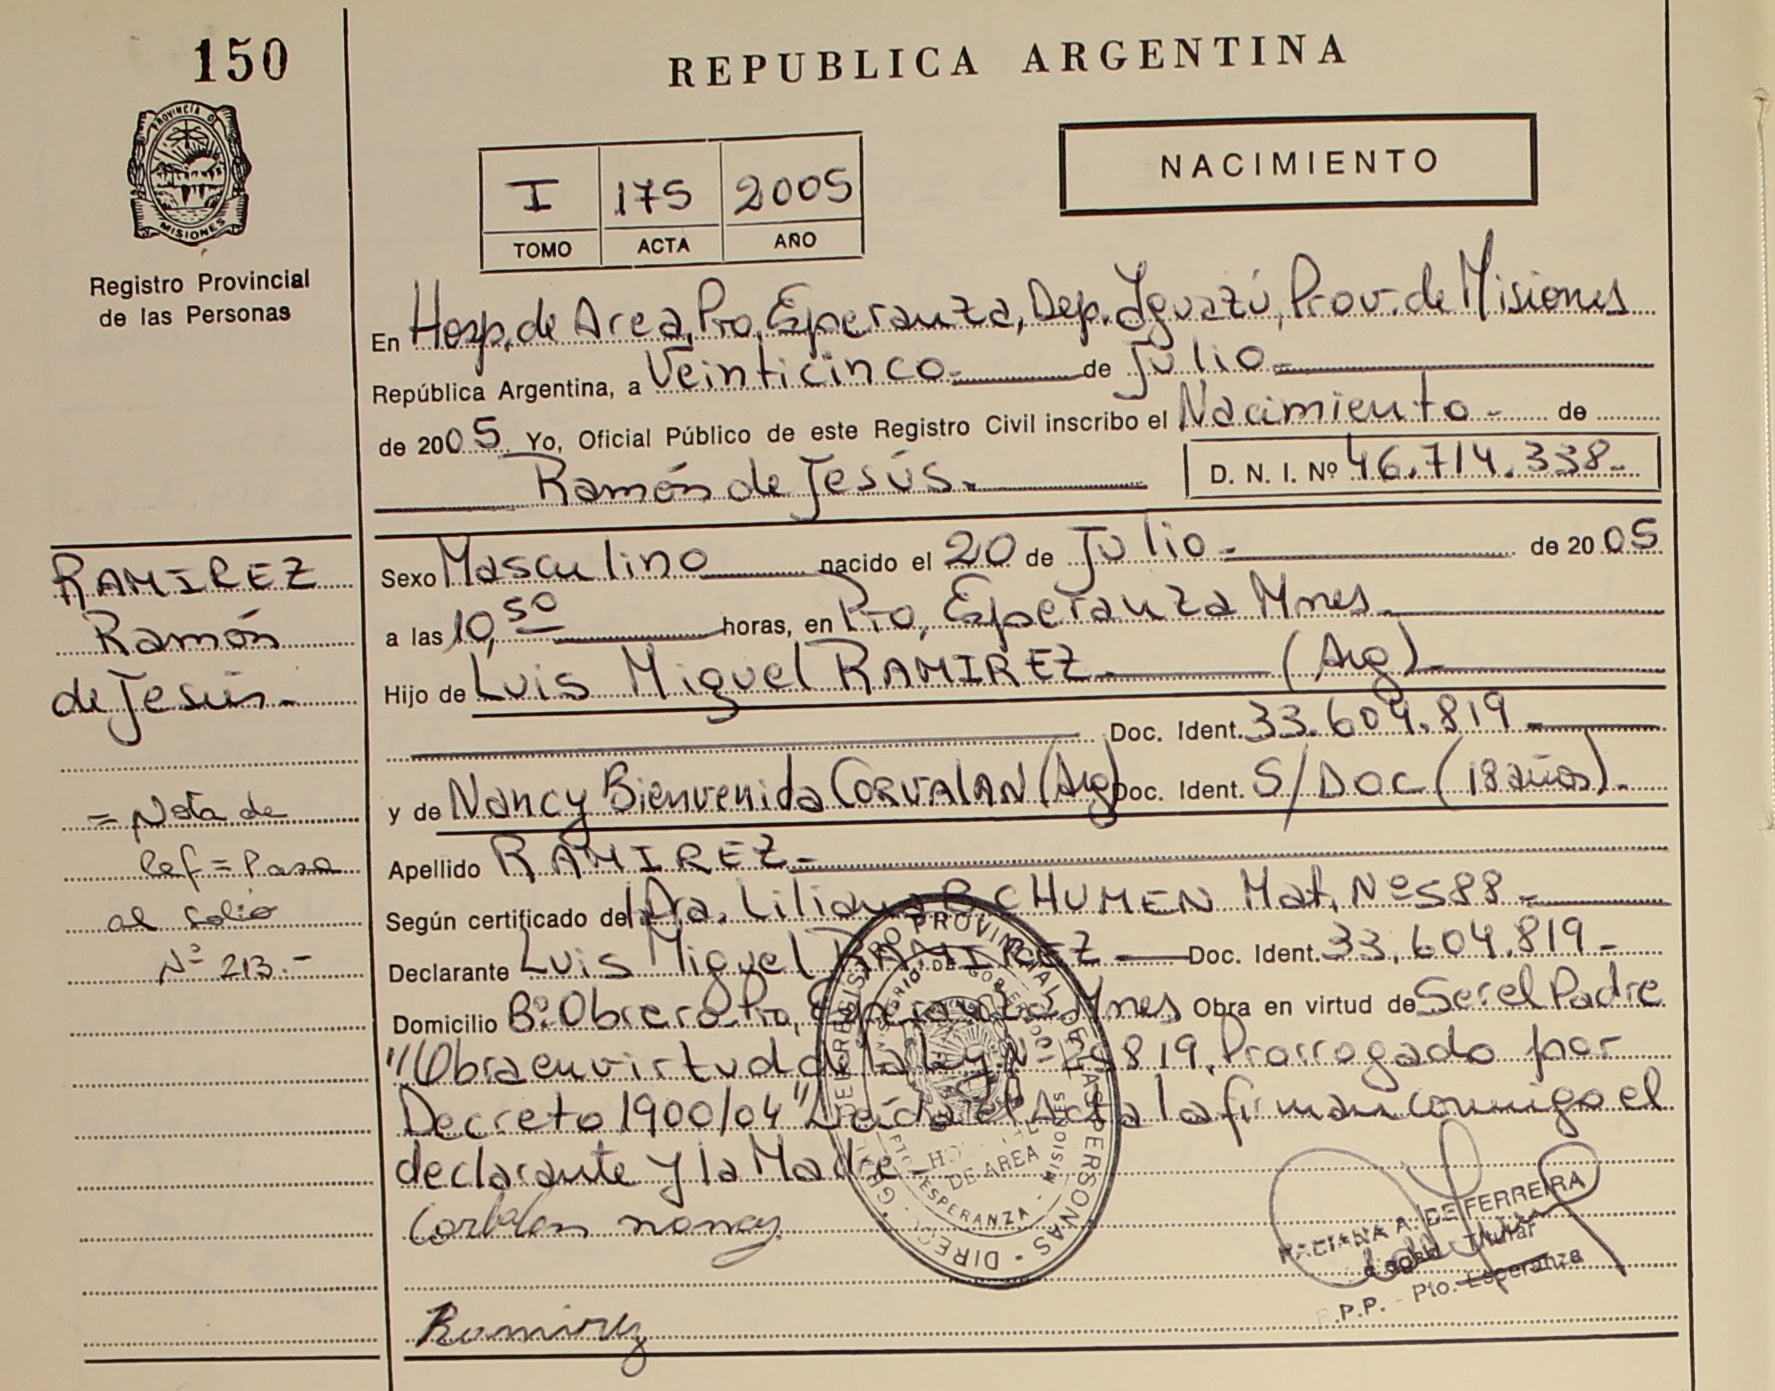 150
REPUBLICA ARGENTINA
PROVINCIA DE
MISIONES
Registro Provincial
de las Personas
I 175 2005
TOMO ACTA AÑO
NACIMIENTO
En Hosp. de Area, Pto. Esperanza, Dep. Iguazú, Prov. de Misiones
República Argentina, a Veinticinco.- de Julio.-
de 2005 Yo, Oficial Público de este Registro Civil inscribo el Nacimiento - de
Ramón de Jesús.- D. N. I. Nº 46.714.338-
RAMIREZ
Ramón
de Jesús.-
Sexo Masculino nacido el 20 de Julio - de 2005
a las 10,50 horas, en Pto, Esperanza Mnes.
Hijo de Luis Miguel RAMIREZ. (Arg)-
Doc. Ident. 33.609.819-
y de Nancy Bienvenida CORVALAN (Arg) Doc. Ident. S/DOC (18 años).-
= Nota de
Ref = Pasa
al folio
Nº 213.-
Apellido RAMIREZ-
Según certificado de la Dra. Liliana B CHUMEN Mat. Nº 588-
Declarante Luis Miguel RAMIREZ Doc. Ident. 33.609.819-
Domicilio Bº Obrero Pto, Esperanza Mnes Obra en virtud de Ser el Padre
"Obra en virtud de la ley Nº 25819, Prorrogado por
Decreto 1900/04" Leída el Acta la firman conmigo el
declarante y la Madre-
nancy
Ramirez
REGISTRO PROVINCIAL DE LAS PERSONAS
DE AREA
ESPERANZA
MISIONES
A. DE FERREIRA
Titular
P.P. - Pto. Esperanza